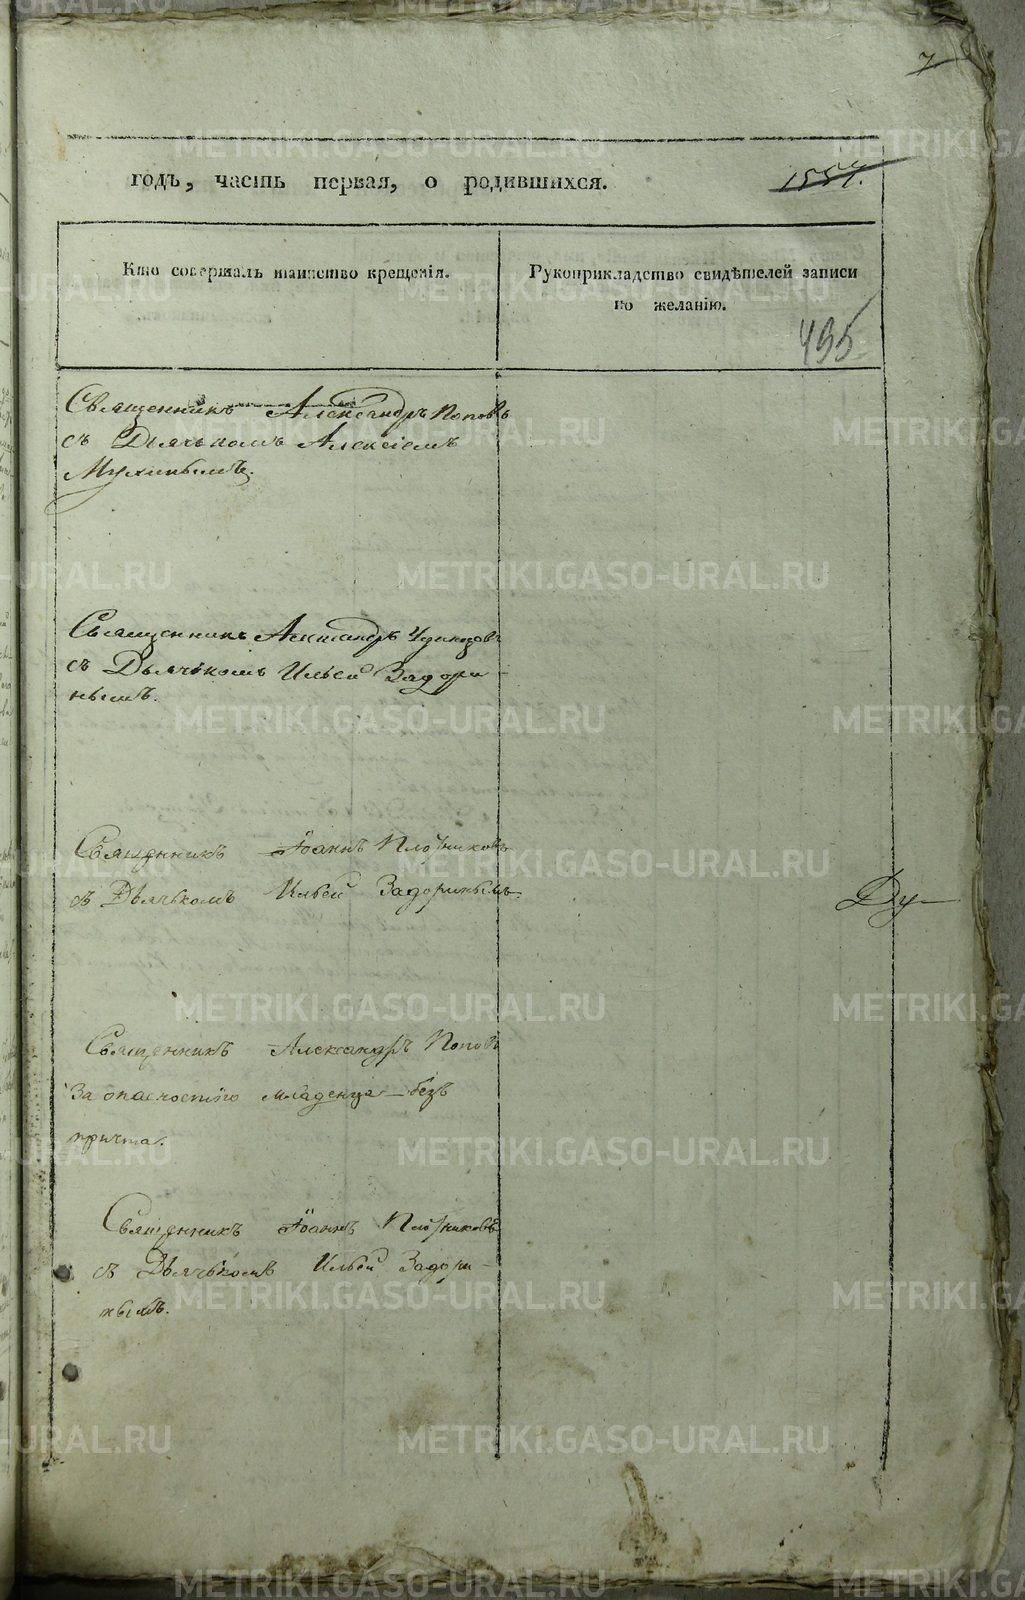 7
годъ, часть первая, о родившихся.
1554.
Кто совершалъ таинство крещенія.
Рукоприкладство свидѣтелей записи
по желанію.
495
Священникъ Александръ Поповъ
съ Дьячькомъ Алексіемъ
Мухинымъ.
Священникъ Александръ
съ Дьячькомъ Ильей Задори-
нымъ.
Священникъ Іоаннъ Плотниковъ
съ Дьячькомъ Ильей Задоринымъ.
Ду
Священникъ Александръ Поповъ
За опасностію младенца безъ
причта.
Священникъ Іоаннъ Плотниковъ
съ Дьячькомъ Ильей Задори-
нымъ.
METRIKI.GASO-URAL.RU